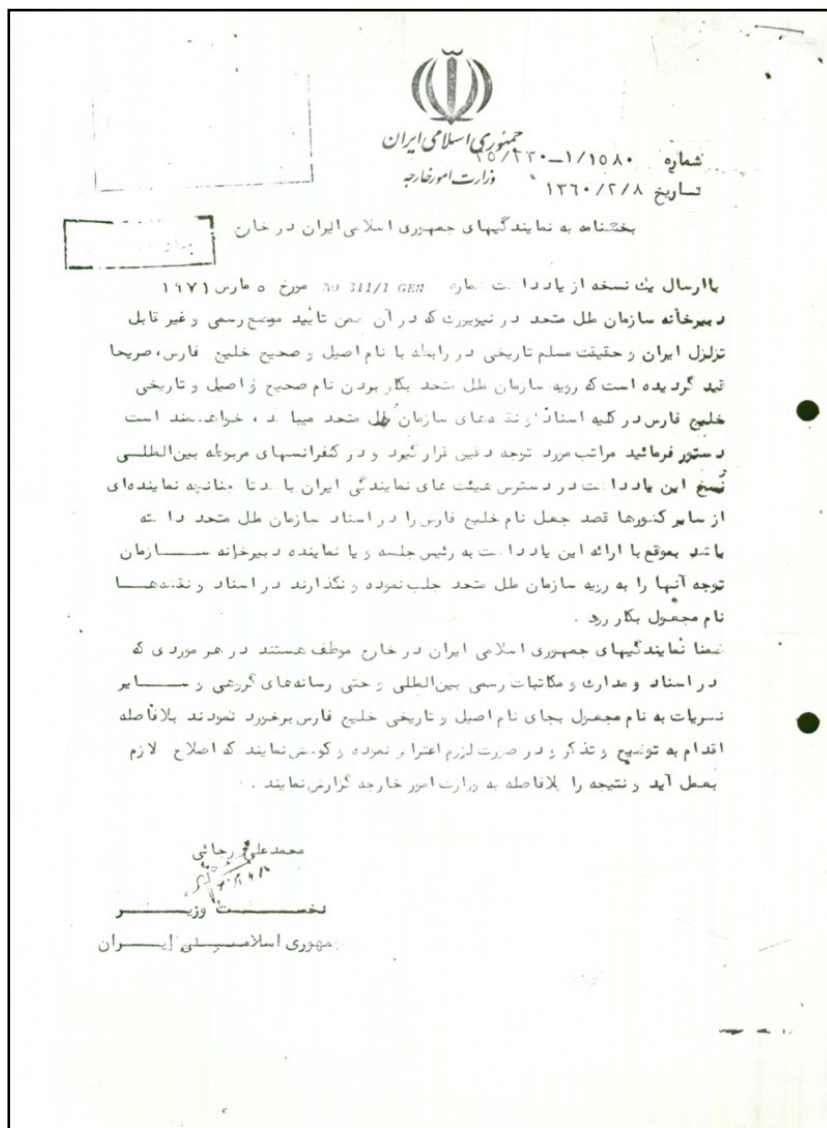 جمهوری اسلامی ایران
وزارت امور خارجه
شماره ۱/۱۵۸۰-
تاریخ ۱۳۶۰/۲/۸
بخشنامه به نمایندگیهای جمهوری اسلامی ایران در خارج
با ارسال یک نسخه از یادداشت شماره AD 311/1 GEN مورخ ۵ مارس ۱۹۷۱
دبیرخانه سازمان ملل متحد در نیویورک که در آن ضمن تأیید موضع رسمی و غیر قابل
تزلزل ایران و حقیقت مسلم تاریخی در رابطه با نام اصیل و صحیح خلیج فارس، صریحا
قید گردیده است که رویه سازمان ملل متحد بکار بودن نام صحیح و اصیل و تاریخی
خلیج فارس در کلیه اسناد و نقشه‌های سازمان ملل متحد میباشد، خواهشمند است
دستور فرمائید مراتب مورد توجه دقیق قرار گیرد و در کنفرانسهای مربوطه بین‌المللی
نسخ این یادداشت در دسترس هیئت های نمایندگی ایران باشد تا چنانچه نماینده‌ای
از سایر کشورها قصد جعل نام خلیج فارس را در اسناد سازمان ملل متحد داشته
باشد بموقع با ارائه این یادداشت به رئیس جلسه و یا نماینده دبیرخانه سازمان
توجه آنها را به رویه سازمان ملل متحد جلب نموده و نگذارند در اسناد و نقشه‌ها
نام مجعول بکار رود .
ضمنا نمایندگیهای جمهوری اسلامی ایران در خارج موظف هستند در هر موردی که
در اسناد و مدارک و مکاتبات رسمی بین‌المللی و حتی رسانه‌های گروهی و سایر
نشریات به نام مجعول بجای نام اصیل و تاریخی خلیج فارس برخورد نمودند بلافاصله
اقدام به توضیح و تذکر و در صورت لزوم اعتراض نموده و کوشش نمایند که اصلاح لازم
بعمل آید و نتیجه را بلافاصله به وزارت امور خارجه گزارش نمایند .
محمد علی رجائی
نخست وزیر
جمهوری اسلامی ایران